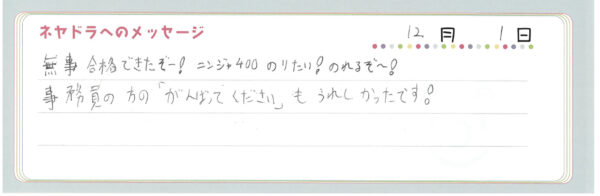 ネヤドラへのメッセージ
12月 1日
無事 合格できたぞー! ニンジャ400 のりたい! のれるぞ〜!
事務員の方の「がんばってください」も うれしかったです!